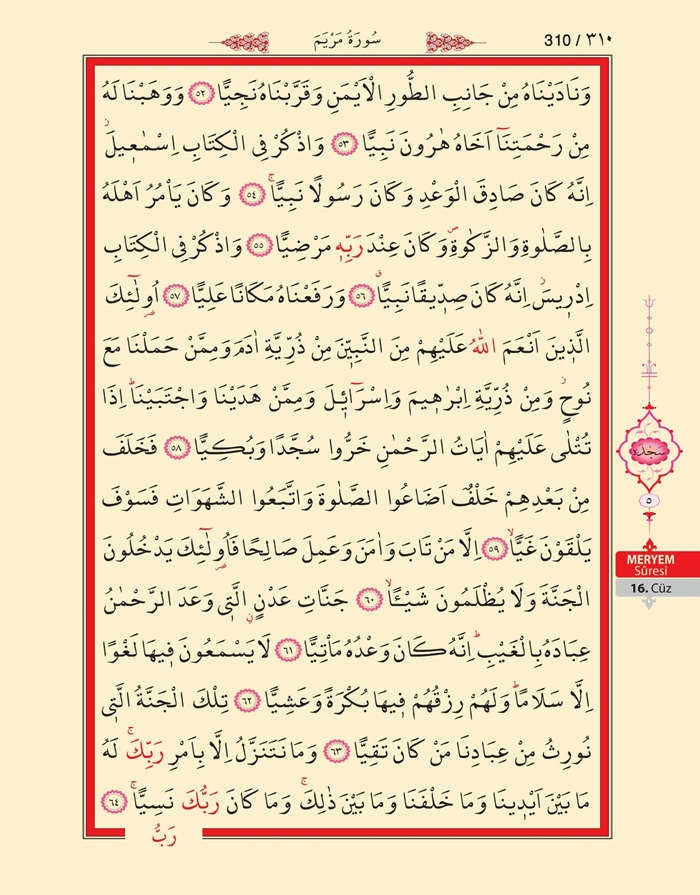 310 / ٣١٠
سُورَةُ مَرْيَمَ
وَنَادَيْنَاهُ مِنْ جَانِبِ الطُّورِ الْاَيْمَنِ وَقَرَّبْنَاهُ نَجِيًّا ﴿٥٢﴾ وَوَهَبْنَا لَهُ
مِنْ رَحْمَتِنَٓا اَخَاهُ هٰرُونَ نَبِيًّا ﴿٥٣﴾ وَاذْكُرْ فِي الْكِتَابِ اِسْمٰعٖيلَؗ
اِنَّهُ كَانَ صَادِقَ الْوَعْدِ وَكَانَ رَسُولًا نَبِيًّاۚ ﴿٥٤﴾ وَكَانَ يَأْمُرُ اَهْلَهُ
بِالصَّلٰوةِ وَالزَّكٰوةِۖ وَكَانَ عِنْدَ رَبِّهٖ مَرْضِيًّا ﴿٥٥﴾ وَاذْكُرْ فِي الْكِتَابِ
اِدْرٖيسَؗ اِنَّهُ كَانَ صِدّٖيقًا نَبِيًّاۗ ﴿٥٦﴾ وَرَفَعْنَاهُ مَكَانًا عَلِيًّا ﴿٥٧﴾ اُو۬لٰٓئِكَ
الَّذٖينَ اَنْعَمَ اللّٰهُ عَلَيْهِمْ مِنَ النَّبِيّٖنَ مِنْ ذُرِّيَّةِ اٰدَمَ وَمِمَّنْ حَمَلْنَا مَعَ
نُوحٍؗ وَمِنْ ذُرِّيَّةِ اِبْرٰهٖيمَ وَاِسْرَٓائٖلَ وَمِمَّنْ هَدَيْنَا وَاجْتَبَيْنَاۜ اِذَا
تُتْلٰى عَلَيْهِمْ اٰيَاتُ الرَّحْمٰنِ خَرُّوا سُجَّدًا وَبُكِيًّا ﴿٥٨﴾ فَخَلَفَ
مِنْ بَعْدِهِمْ خَلْفٌ اَضَاعُوا الصَّلٰوةَ وَاتَّبَعُوا الشَّهَوَاتِ فَسَوْفَ
يَلْقَوْنَ غَيًّاۙ ﴿٥٩﴾ اِلَّا مَنْ تَابَ وَاٰمَنَ وَعَمِلَ صَالِحًا فَاُو۬لٰٓئِكَ يَدْخُلُونَ
الْجَنَّةَ وَلَا يُظْلَمُونَ شَيْـًٔاۙ ﴿٦٠﴾ جَنَّاتِ عَدْنٍۨ الَّتٖي وَعَدَ الرَّحْمٰنُ
عِبَادَهُ بِالْغَيْبِۜ اِنَّهُ كَانَ وَعْدُهُ مَأْتِيًّا ﴿٦١﴾ لَا يَسْمَعُونَ فٖيهَا لَغْوًا
اِلَّا سَلَامًاۜ وَلَهُمْ رِزْقُهُمْ فٖيهَا بُكْرَةً وَعَشِيًّا ﴿٦٢﴾ تِلْكَ الْجَنَّةُ الَّتٖي
نُورِثُ مِنْ عِبَادِنَا مَنْ كَانَ تَقِيًّا ﴿٦٣﴾ وَمَا نَتَنَزَّلُ اِلَّا بِاَمْرِ رَبِّكَۚ لَهُ
مَا بَيْنَ اَيْدٖينَا وَمَا خَلْفَنَا وَمَا بَيْنَ ذٰلِكَۚ وَمَا كَانَ رَبُّكَ نَسِيًّاۚ ﴿٦٤﴾
رَبُّ
سجدة
٥
MERYEM
Sûresi
16. Cüz